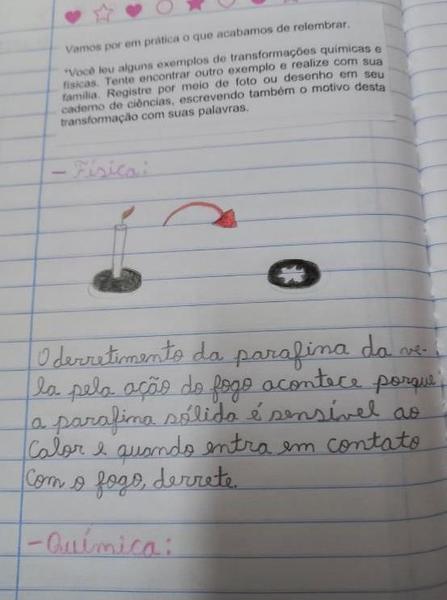 Vamos por em prática o que acabamos de relembrar.
"Você leu alguns exemplos de transformações químicas e
físicas. Tente encontrar outro exemplo e realize com sua
família. Registre por meio de foto ou desenho em seu
caderno de ciências, escrevendo também o motivo desta
transformação com suas palavras.
- Física:
O derretimento da parafina da ve-
la pela ação do fogo acontece porque
a parafina sólida é sensível ao
calor e quando entra em contato
com o fogo, derrete.
- Química: